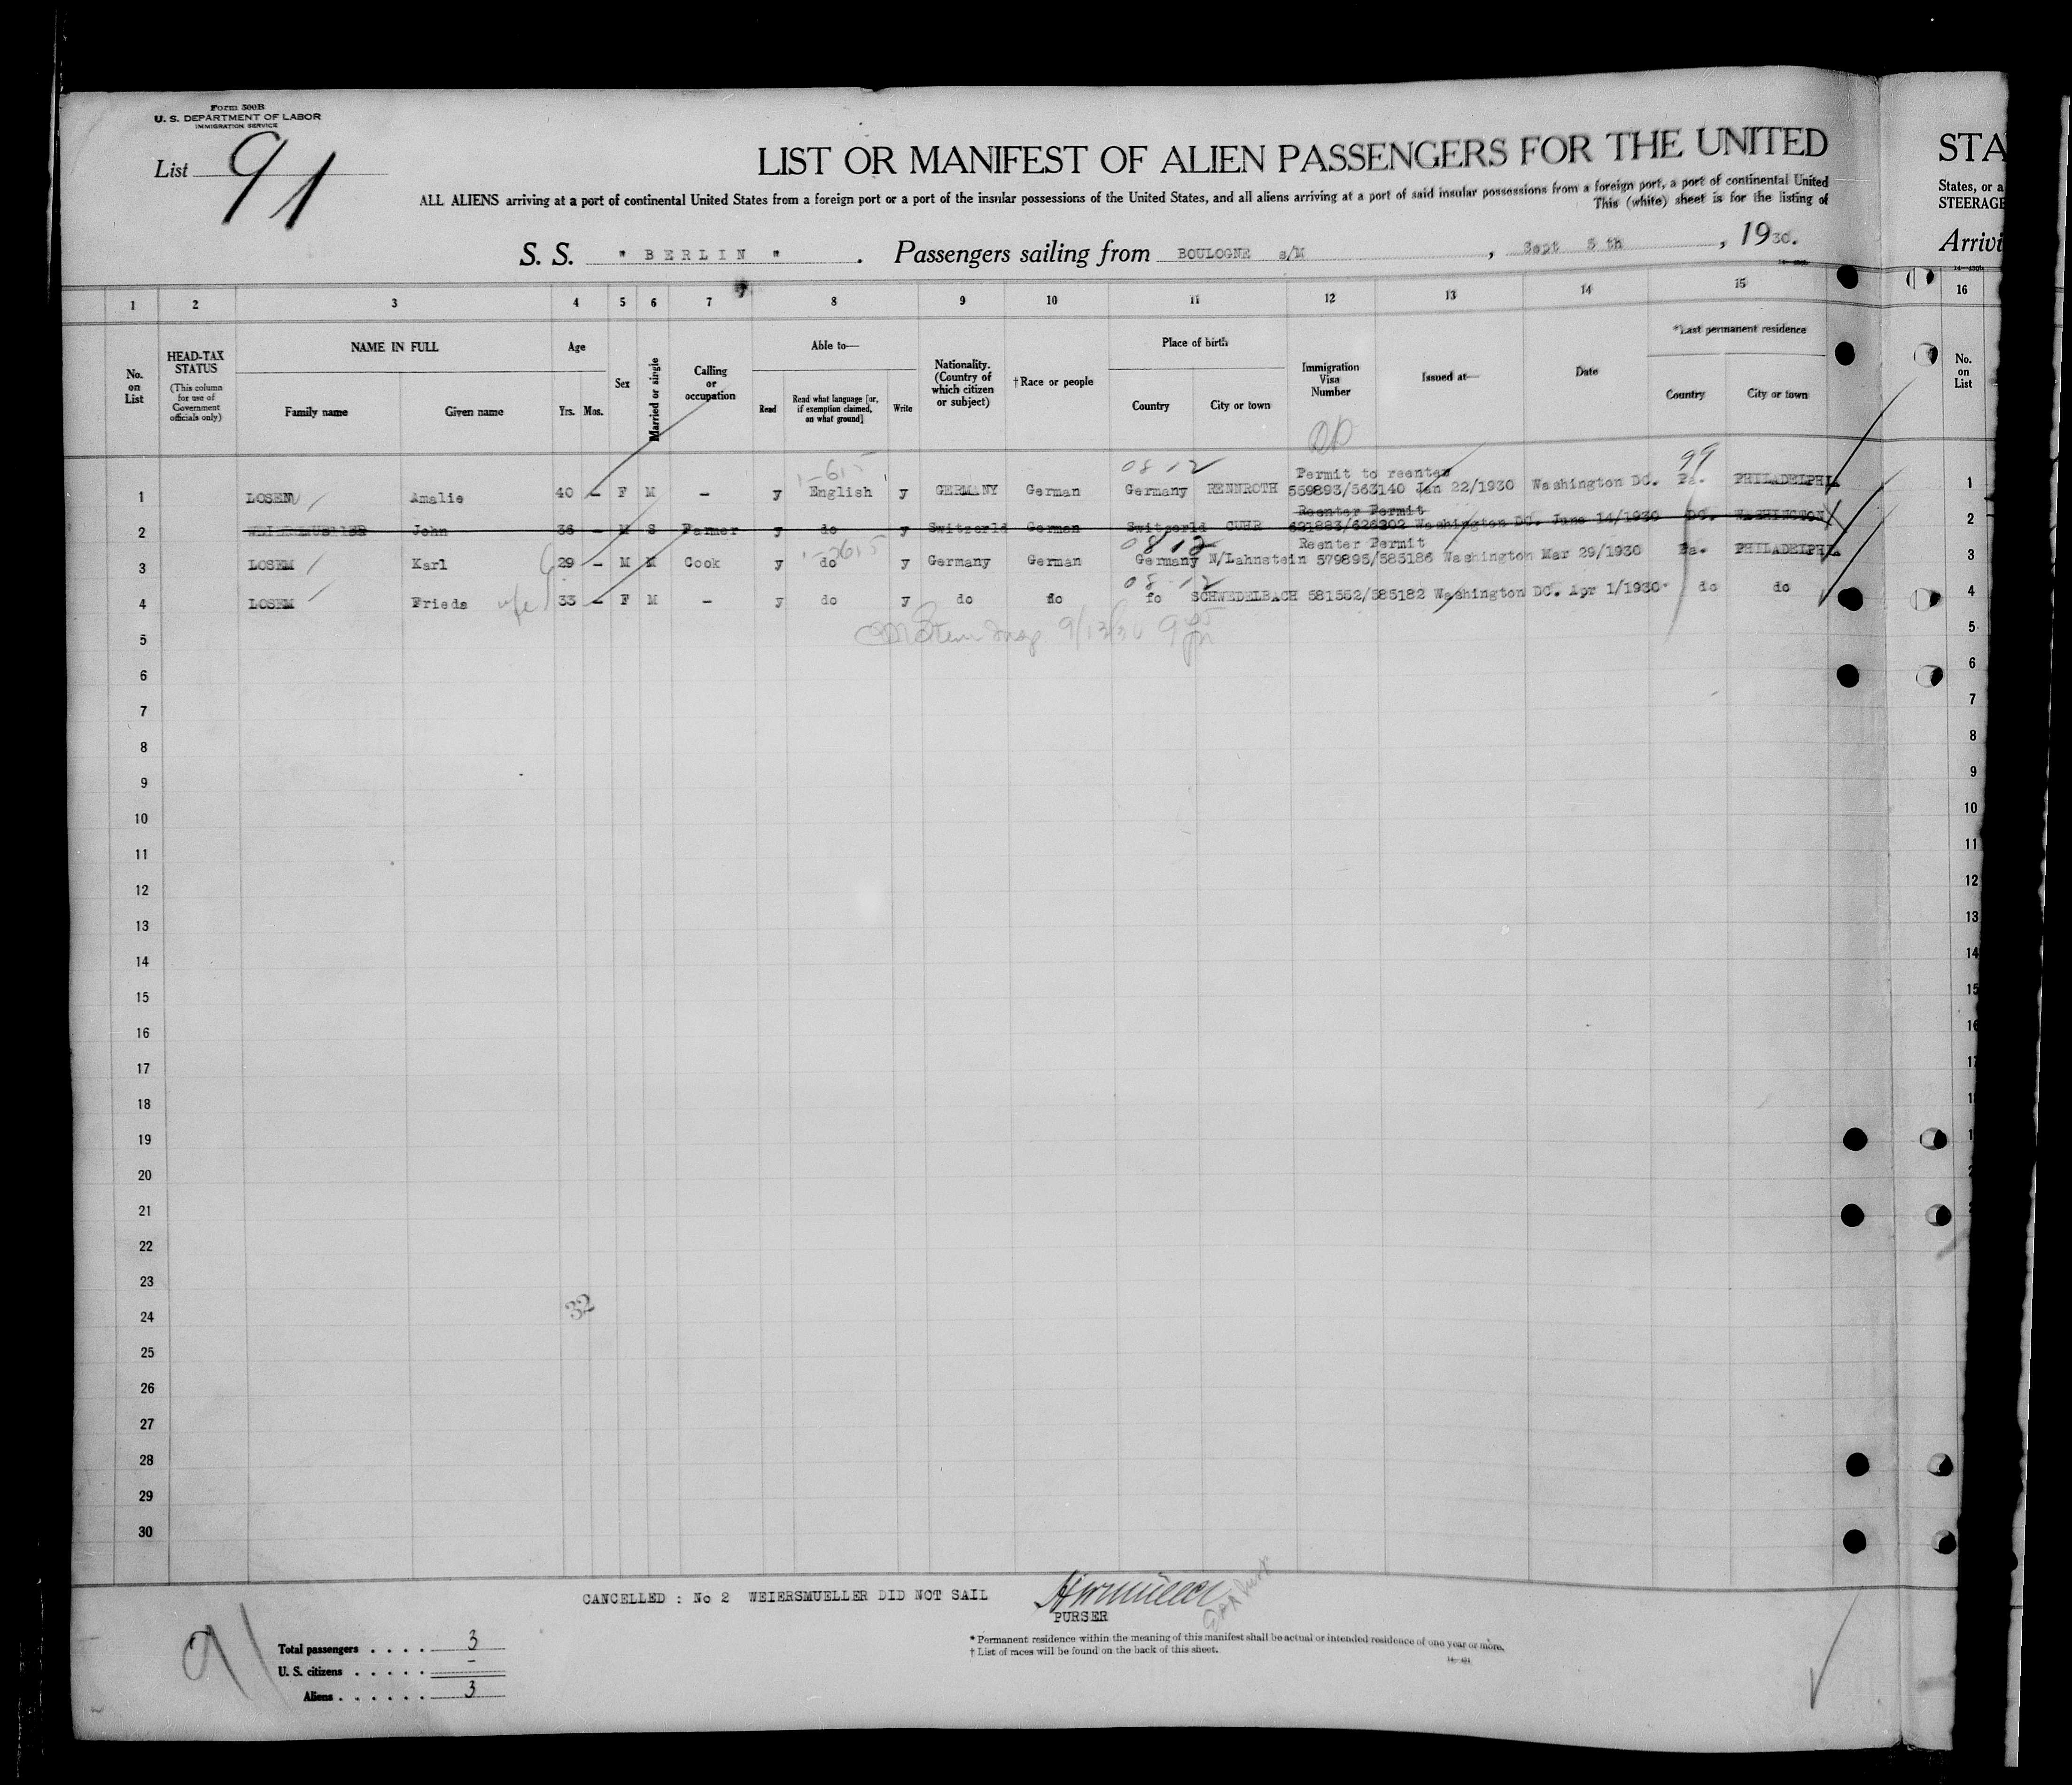 Form 500B
U. S. DEPARTMENT OF LABOR
IMMIGRATION SERVICE
List 91
LIST OR MANIFEST OF ALIEN PASSENGERS FOR THE UNITED
STA
ALL ALIENS arriving at a port of continental United States from a foreign port or a port of the insular possessions of the United States, and all aliens arriving at a port of said insular possessions from a foreign port, a port of continental United
States, or a
This (white) sheet is for the listing of
STEERAGE
S. S. " BERLIN " . Passengers sailing from BOULOGNE s/M , Sept 5 th , 1930.
Arrivi
1 2 3 4 5 6 7 8 9 10 11 12 13 14 15 16
No. on List
HEAD-TAX STATUS
(This column for use of Government officials only)
NAME IN FULL
Family name
Given name
Age
Yrs. Mos.
Sex
Married or single
Calling or occupation
Able to—
Read
Read what language [or, if exemption claimed, on what ground]
Write
Nationality. (Country of which citizen or subject)
†Race or people
Place of birth
Country
City or town
Immigration Visa Number
Issued at—
Date
*Last permanent residence
Country
City or town
No. on List
08 12
99
Permit to reenter
1 LOSEN Amalie 40 – F M – y English y GERMANY German Germany RENNROTH 559893/563140 Jan 22/1930 Washington DC. Pa. PHILADELPHIA 1
Reenter Permit
2 WEIERSMUELLER John 36 – M S Farmer y do y Switzerld German Switzerld CUHR 621883/626202 Washington DC. June 14/1930 DC. WASHINGTON 2
08 12
Reenter Permit
3 LOSEM Karl 29 – M M Cook y do y Germany German Germany N/Lahnstein 579895/585186 Washington Mar 29/1930 Pa. PHILADELPHIA 3
08 12
4 LOSEM Frieds wife 33 – F M – y do y do do fo SCHWEDELBACH 581552/585182 Washington DC. Apr 1/1930 do do 4
9/13/30
5 5
6 6
7 7
8 8
9 9
10 10
11 11
12 12
13 13
14 14
15 15
16 16
17 17
18
19
20
21
22
23
24
32
25
26
27
28
29
30
CANCELLED : No 2 WEIERSMUELLER DID NOT SAIL
PURSER
91
Total passengers . . . . 3
U. S. citizens . . . . . –
Aliens . . . . . . 3
* Permanent residence within the meaning of this manifest shall be actual or intended residence of one year or more.
† List of races will be found on the back of this sheet.